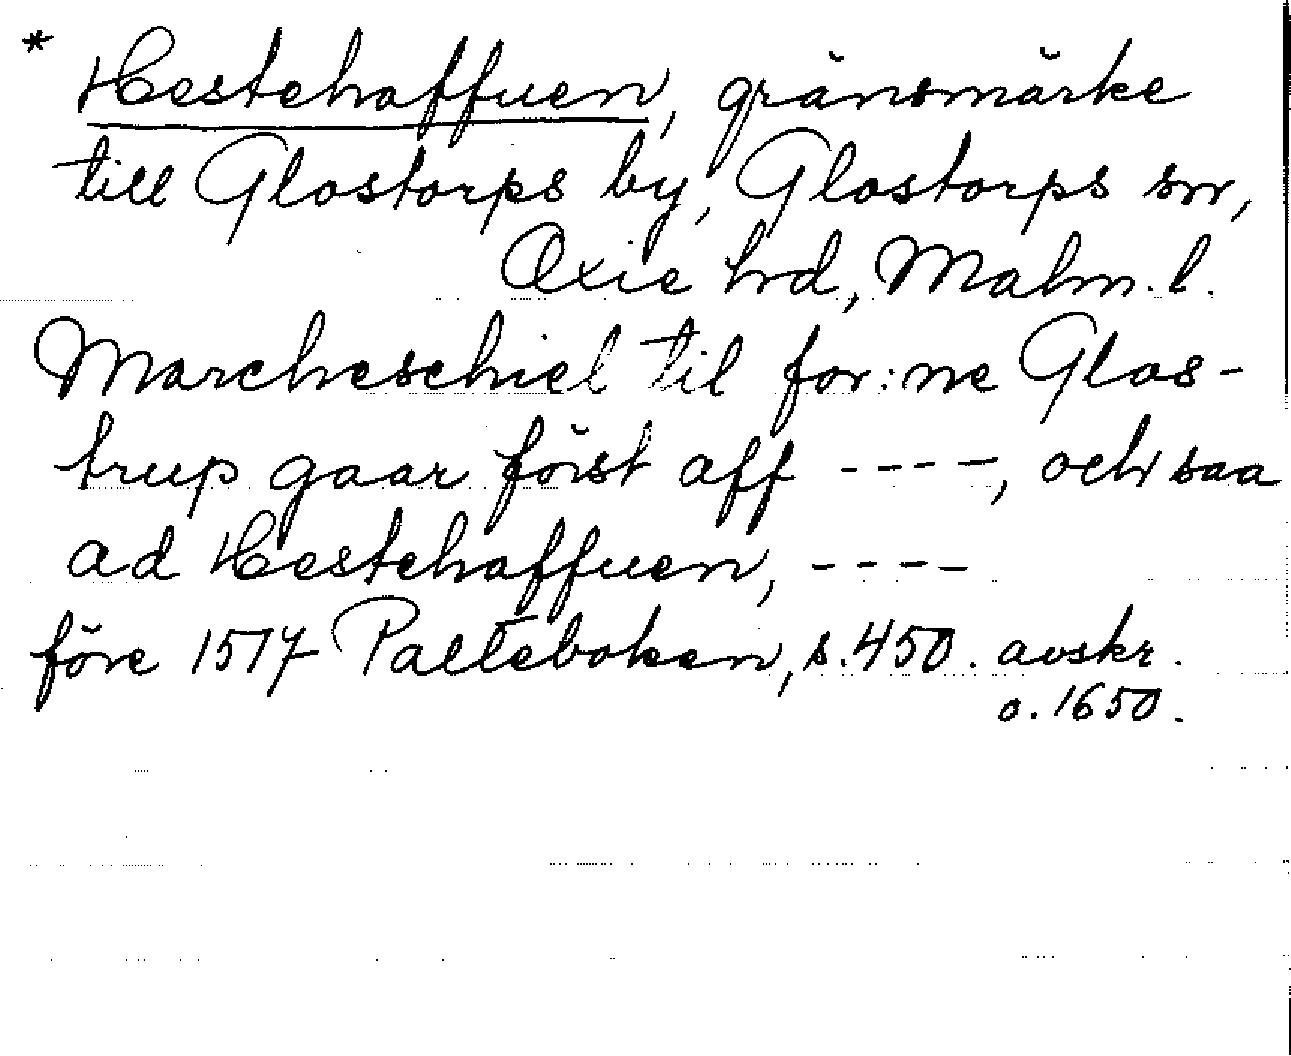 * Hestehaffuen, gränsmärke
till Glostorps by, Glostorps sn,
Oxie hrd, Malm.l.
Marcheschiel til for:ne Glos-
trup gaar först aff ----, och saa
ad Hestehaffuen, ----
före 1517 Palteboken, s.450. avskr.
o.1650.